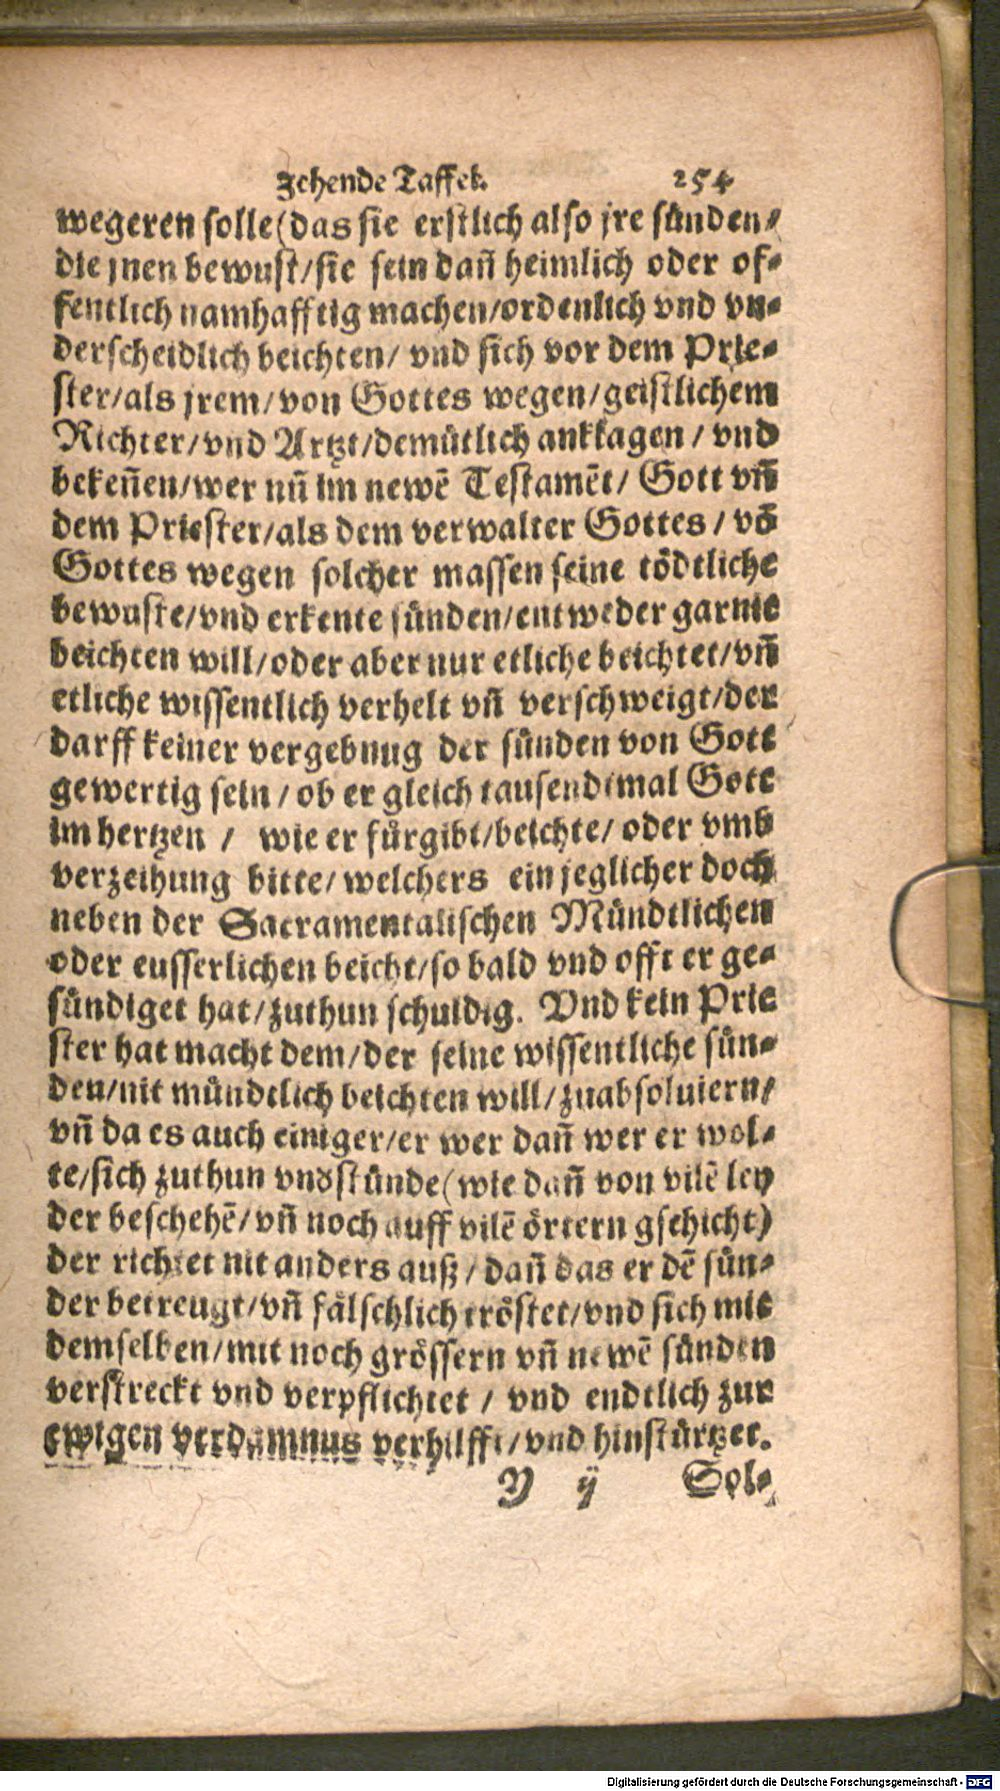 Zehende Taffel. 254
wegeren solle (das sie erstlich also jre sünden/
die jnen bewust/sie sein dañ heimlich oder of-
fentlich namhafftig machen/ordenlich vnd vn-
derscheidlich beichten/ vnd sich vor dem Prie-
ster/als jrem/von Gottes wegen/geistlichem
Richter/vnd Artzt/demütlich anklagen / vnd
bekeñen/wer nũ im newẽ Testamẽt/ Gott vñ
dem Priester/als dem verwalter Gottes / võ
Gottes wegen solcher massen seine tödtliche
bewuste/vnd erkente sünden/entweder gar nit
beichten will/oder aber nur etliche beichtet/vñ
etliche wissentlich verhelt vñ verschweigt/der
darff keiner vergebnug der sünden von Gott
gewertig sein / ob er gleich tausendtmal Gott
im hertzen / wie er fürgibt/beichte/ oder vmb
verzeihung bitte/ welchers ein jeglicher doch
neben der Sacramentalischen Mündtlichen
oder eusserlichen beicht/so bald vnd offt er ge-
sündiget hat/zuthun schuldig. Vnd kein Prie
ster hat macht dem/der seine wissentliche sün-
den/nit mündtlich beichten will/zuabsoluiern/
vñ da es auch einiger/er wer dañ wer er wol-
te/sich zuthun vndstünde (wie dañ von vilẽ ley
der beschehẽ/vñ noch auff vilẽ örtern gschicht)
der richtet nit anders auß / dañ das er dẽ sün-
der betreugt/vñ fälschlich tröstet/vnd sich mit
demselben/mit noch grössern vñ newẽ sünden
verstreckt vnd verpflichtet / vnd endtlich zur
ewigen verdamnus verhilfft/vnd hinstürtzet.
Y ij Sol-
Digitalisierung gefördert durch die Deutsche Forschungsgemeinschaft - DFG